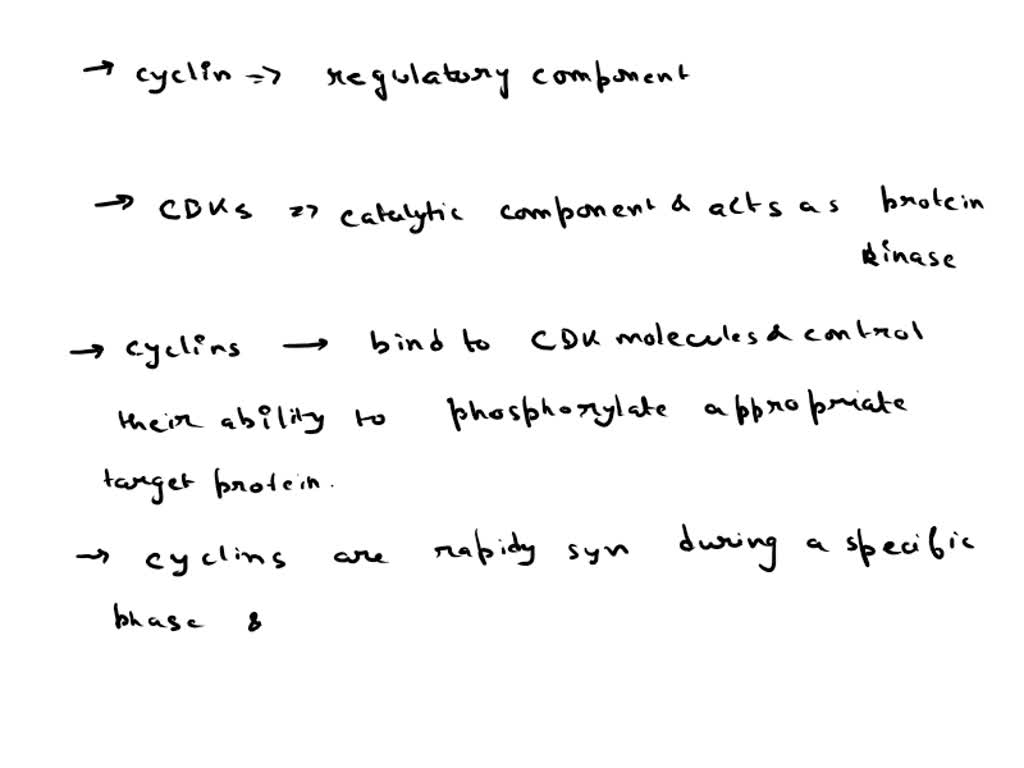 → cyclin => regulatory component
→ CDKs => catalytic component & acts as protein
kinase
→ cyclins → bind to CDK molecules & control
their ability to phosphorylate appropriate
target protein.
→ cyclins are rapidy syn during a specific
phase &